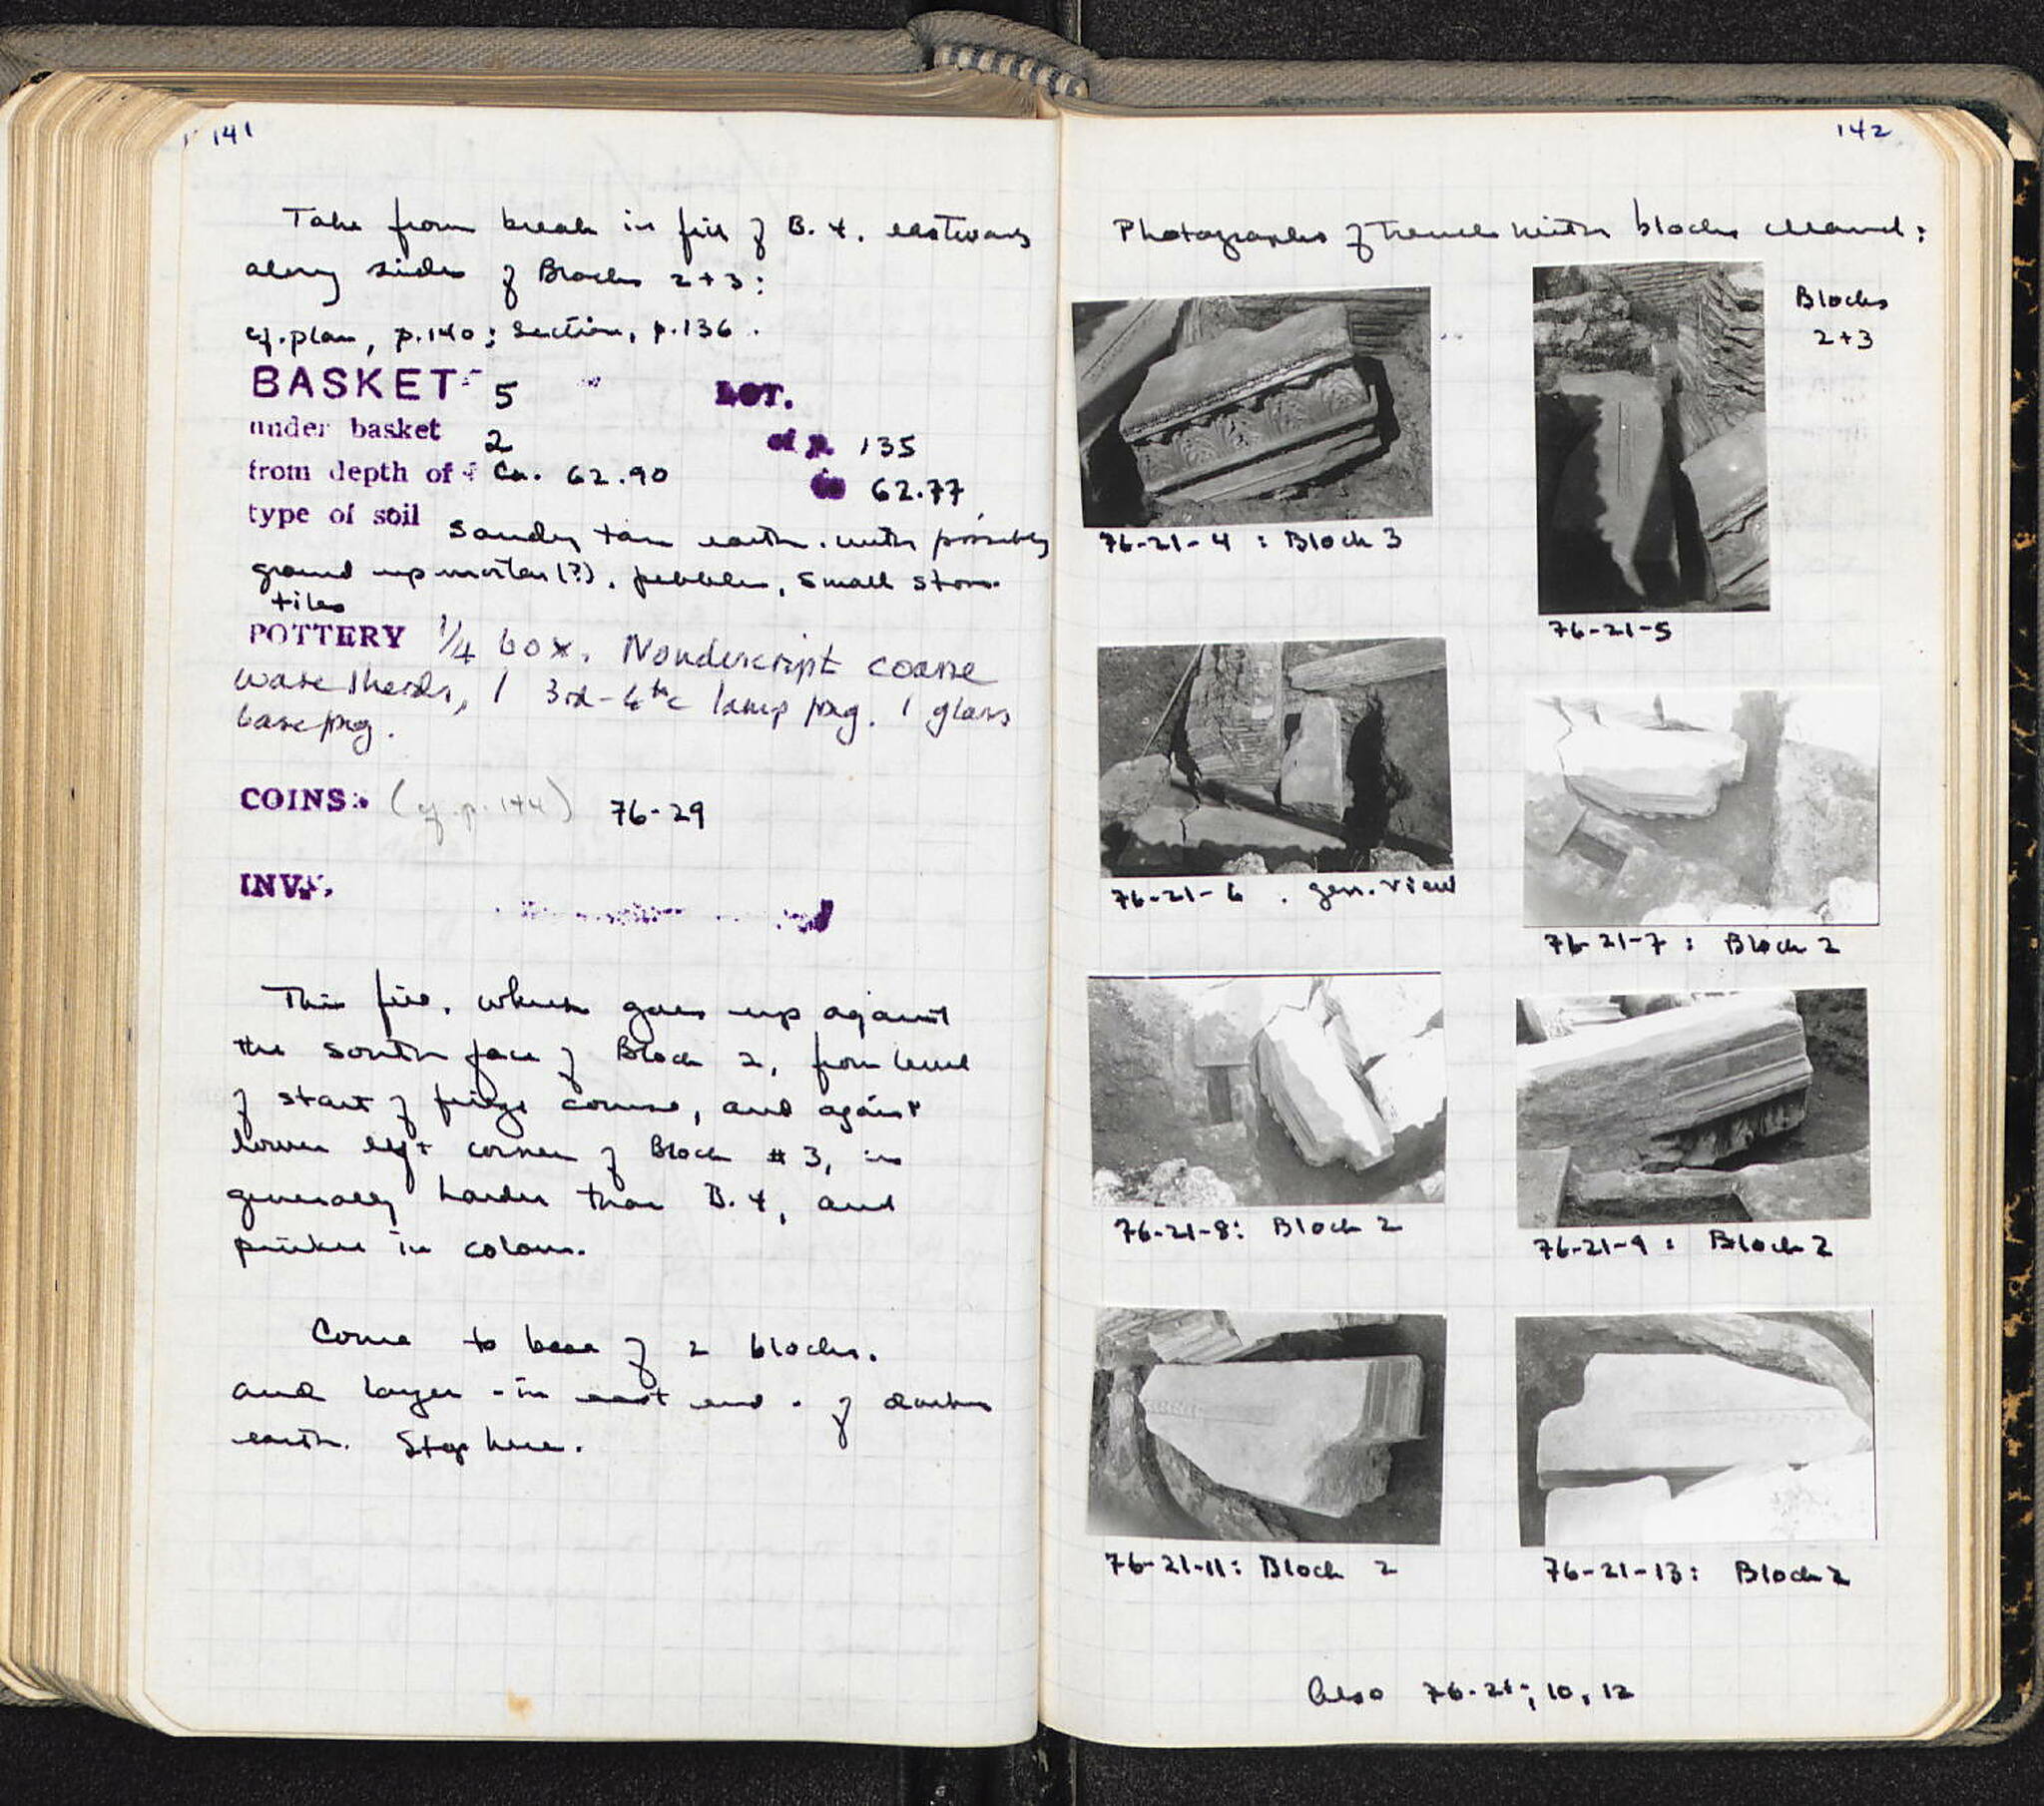 141
Take from break in fill of B. 4. eastwards
along sides of Blocks 2+3:
cf. plan, p. 140; section, p. 136.
BASKET 5 LOT.
under basket 2 of p. 135
from depth of Ca. 62.90 to 62.77
type of soil Sandy tan earth. with possibly
ground up mortar (?), pebbles, small stones
tiles
POTTERY 1/4 box. Nondescript coarse
ware sherds, 1 3rd-6th c lamp frag. 1 glass
base frag.
COINS: (cf. p. 144) 76-29
INV.
This fill, which goes up against
the south face of Block 2, from level
of start of frieze course, and against
lower left corner of Block #3, is
generally harder than B. 4, and
pinker in colour.
Come to base of 2 blocks.
and layer - in east end - of darker
earth. Stop here.
142
Photographs of trench with blocks cleaned:
76-21-4 : Block 3
Blocks
2+3
76-21-5
76-21-6 . gen. view
76-21-7 : Block 2
76-21-8: Block 2
76-21-9 : Block 2
76-21-11: Block 2
76-21-13: Block 2
Also 76-21-, 10, 12